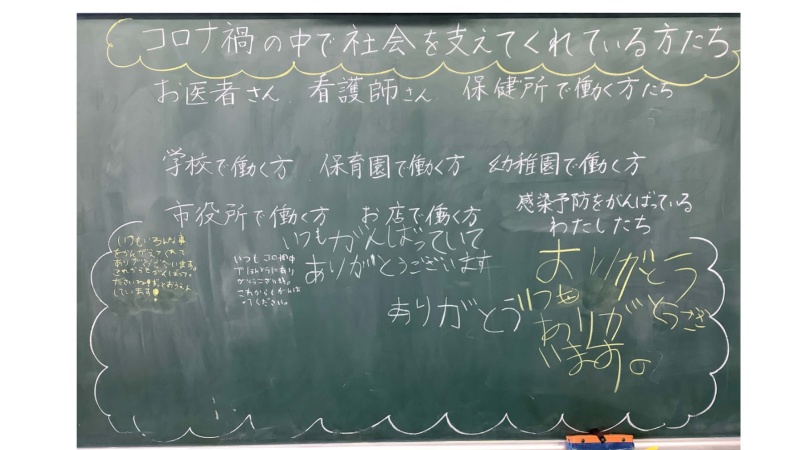 コロナ禍の中で社会を支えてくれている方たち
お医者さん 看護師さん 保健所で働く方たち
学校で働く方 保育園で働く方 幼稚園で働く方
市役所で働く方 お店で働く方 感染予防をがんばっている
わたしたち
いつもいろんな事
をかんがえてくれて
ありがとうございます。
しています!
いつもコロナ禍中
でほんとうにあり
がとうございます。
これからもがんば
ってください。
いつもがんばっていて
ありがとうございます
ありがとう
ありがとう
いつも
ありがとうござ
います。